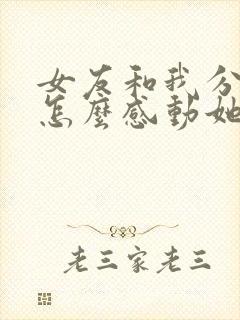 女友和我分
怎麼感動她
老三家老三